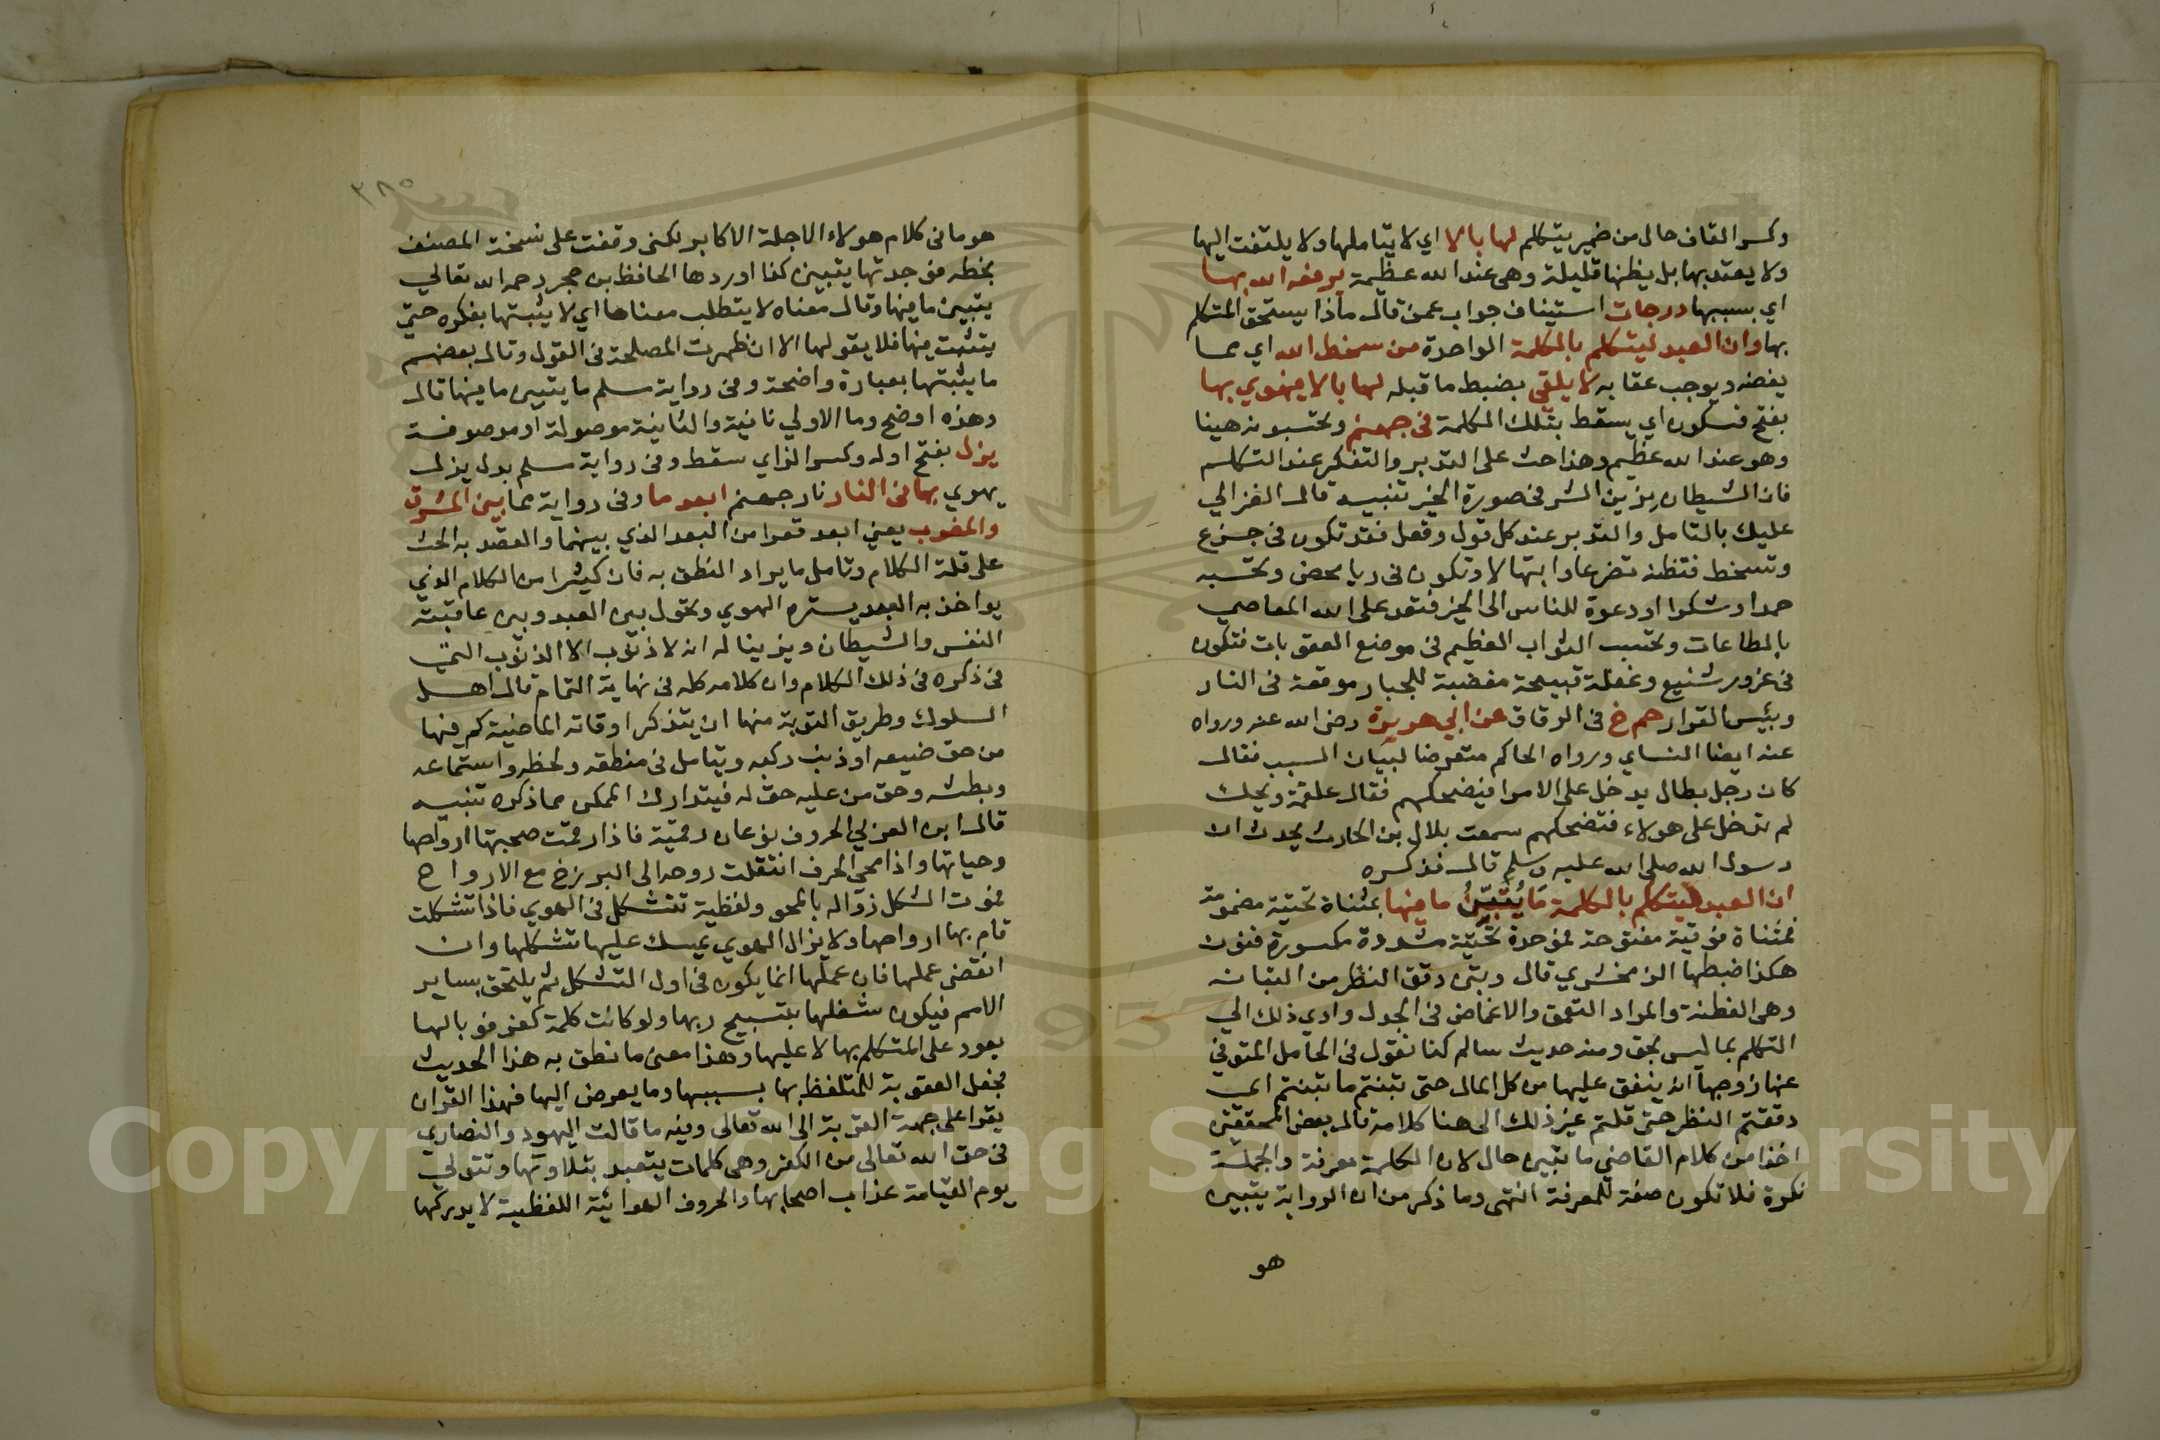 وكسر القاف حال من ضمير يتكلم لها بالا اي لا يتاملها ولا يلتفت اليها
ولا يعتد بها بل يظنها قليلة وهي عند الله عظيمة يرفعه الله بها
اي بسببها درجات استيناف جواب عمن قال ماذا يستحق المتكلم
بها وان العبد ليتكلم بالكلمة الواحدة من سخط الله اي مما
يغضبه ويوجب عقابه لا يلقي بضبط ما قبله لها بالا يهوي بها
بفتح فسكون اي يسقط بتلك الكلمة في جهنم وتحسبونه هينا
وهو عند الله عظيم وهذا حث على التدبر والتفكر عند التكلم
فان الشيطان يزين الشر في صورة الخير تنبيه قال الغزالي
عليك بالتامل والتدبر عند كل قول وفعل فقد تكون في جزع
وتسخط فتظنه تضرعا وابتهالا وتكون في ريا محض وتحسبه
حمدا وشكرا او دعوة للناس الى الخير فتعد على الله المعاصي
بالطاعات وتحتسب الثواب العظيم في موضع العقوبات فتكون
في غرور شنيع وغفلة قبيحة مغضبة للجبار موقعة في النار
وبئس القرار حم خ في الرقاق عن ابي هريرة رضي الله عنه ورواه
عنه ايضا النساي ورواه الحاكم متعرضا لبيان السبب فقال
كان رجل بطال يدخل على الامرا فيضحكهم فقال علقمة ويحك
لم تدخل على هولاء فتضحكهم سمعت بلال بن الحارث يحدث ان
رسول الله صلى الله عليه وسلم قال فذكره
ان العبد ليتكلم بالكلمة مَا يُتَبَيّنُ ما فيها بمثناة تحتية مضمومة
فمثناة فوقية مفتوحة فموحدة تحتية مشددة مكسورة فنون
هكذا ضبطها الزمخشري قال وتبن دقق النظر من التبانه
وهي الفطنة والمراد التعمق والاغماض في الجدل وادي ذلك الي
التكلم بما ليس بحق ومنه حديث سالم كنا نقول في الحامل المتوفي
عنها زوجها انه ينفق عليها من كل المال حتى تبنتم ما تبنتم اي
دققتم النظر حتى قلتم غير ذلك الى هنا كلامه قال بعض المحققين
اخذا من كلام القاضي ما يتبين حال لان الكلمة معرفة والجملة
نكرة فلا تكون صفة للمعرفة انتهى وما ذكر من ان الرواية يتبين
هو
٣٨٥
هو ما في كلام هولاء الاجلة الاكابر لكني وقفت على نسخة المصنف
بخطه فوجدتها يتبين كذا اوردها الحافظ بن حجر رحمه الله تعالي
يتبين ما فيها وقال معناه لا يتطلب معناها اي لا يثبتها بفكره حتى
يتثبت فيها فلا يقولها الا ان ظهرت المصلحة في القول وقال بعضهم
ما يثبتها بعبارة واضحة وفي رواية مسلم ما يتبين ما فيها قال
وهذه اوضح وما الاولي نافية والثانية موصولة او موصوفة
يزل بفتح اوله وكسر الزاي سقط وفي رواية مسلم بدل يزل
يهوي بها في النار نار جهنم ابعد ما وفي رواية مما بين المشرق
والمغرب يعني ابعد قعرا من البعد الذي بينهما والقصد به الحث
على قلة الكلام وتامل ما يراد النطق به فان كثيرا من الكلام الذي
يواخذ به العبد يستره الهوي ويحول بين العبد وبين عاقبته
النفس والشيطان ويزينا له انه لا ذنوب الا الذنوب التي
في ذكره في ذلك الكلام وان كلامه كله في نهاية التمام قال اهل
السلوك وطريق التوبة منها ان يتذكر اوقاته الماضية كم فيها
من حق ضيعه او ذنب ركبه ويتامل في منطقه ولحظه واستماعه
وبطشه وحق من عليه حق له فيتدارك الممكن مما ذكره تنبيه
قال ابن العربي الحروف نوعان رقمية فاذا رقمت صحبتها ارواحها
وحياتها واذا محي الحرف انتقلت روحه الى البرزخ مع الارواح
فموت الشكل زواله بالمحو ولفظية تتشكل في الهوي فاذا تشكلت
قام بها ارواحها ولا يزال الهوي يمسك عليها تشكلها وان
انقضى عملها فان عملها انما يكون في اول التشكل ثم يلتحق بساير
الامم فيكون شغلها بتسبيح ربها ولو كانت كلمة كفر فوبالها
يعود على المتكلم بها لا عليها وهذا معنى ما نطق به هذا الحديث
فجعل العقوبة للمتلفظ بها بسببها وما يعرض اليها فهذا القران
يقرا على جهة القربة الى الله تعالى وفيه ما قالت اليهود والنصاري
في حق الله تعالى من الكفر وهي كلمات يتعبد بتلاوتها وتتولي
يوم القيامة عذاب اصحابها والحروف الهوائية اللفظية لا يدركها
Copyright © King Saud University
1957